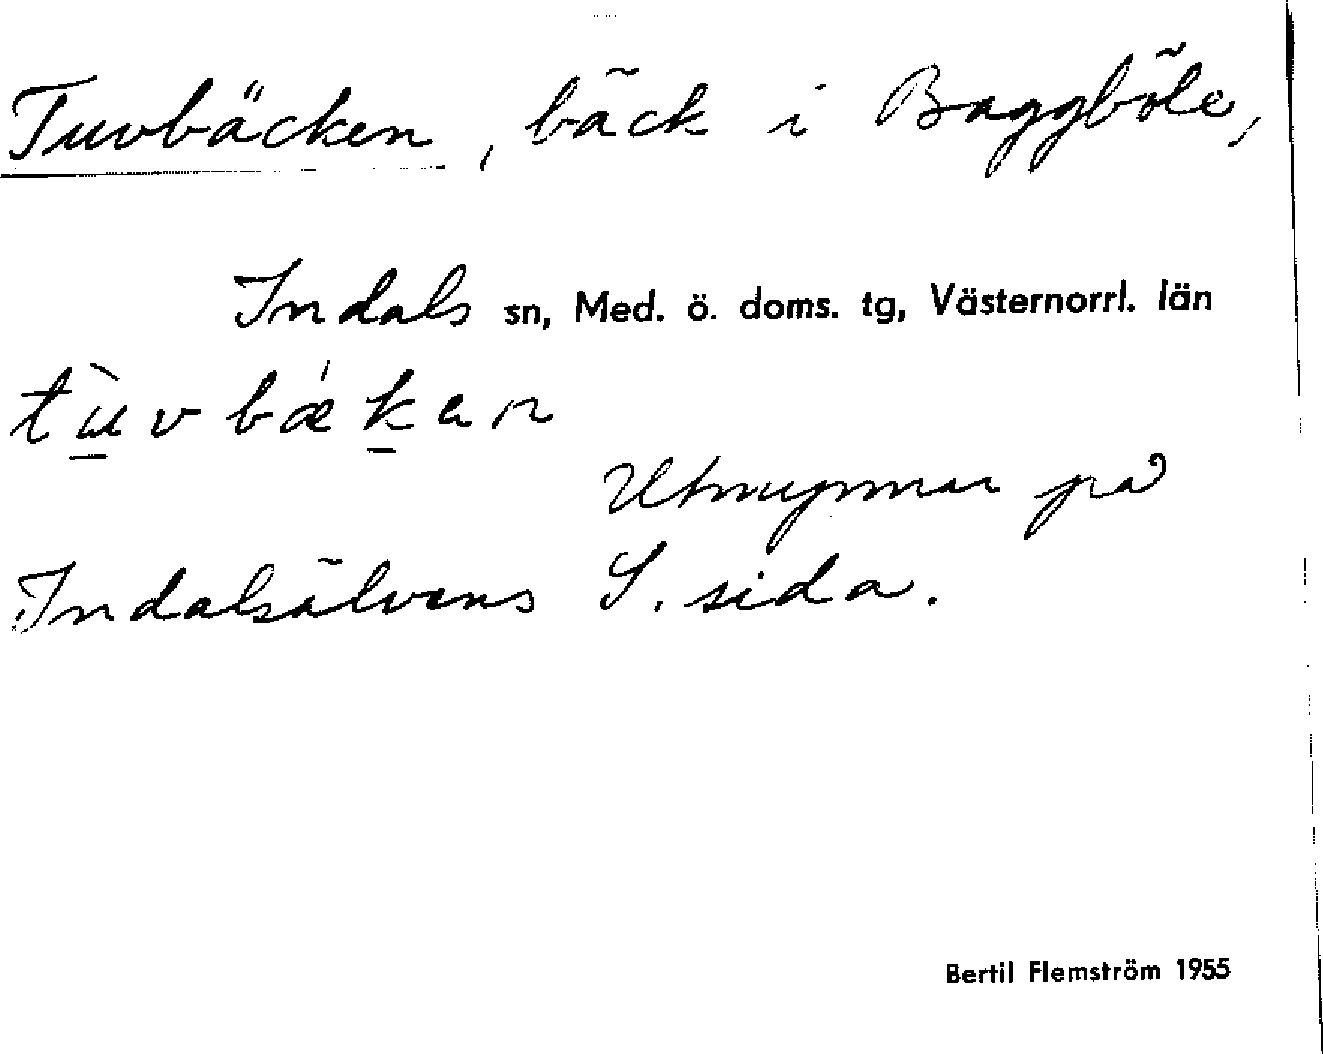 Tuvbäcken, bäck i Baggböle,
Indals sn, Med. ö. doms. tg, Västernorrl. län
tùvbǽkan
Utmynnar på
Indalsälvens S. sida.
Bertil Flemström 1955